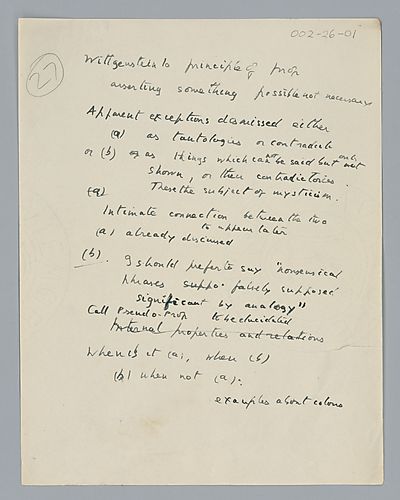 002-26-01
27
Wittgenstein's principle of prop
asserting something possible not necessary
Apparent exceptions dismissed either
(a) as tautologies or contradictn
or (b) as things which cannot be said but only
shown, or their contradictories.
These the subject of mysticism.
(a)
Intimate connection between the two
to appear later
(a) already discussed
(b). I should prefer to say "nonsensical
phrases suppo falsely supposed
significant by analogy"
Call pseudo-prop to be elucidated
Internal properties and relations
When is it (a), when (b)
(b) when not (a).
examples about colours